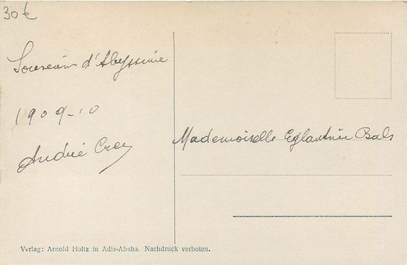 30€
Souvenir d'Abyssinie
1909-10
André
Mademoiselle Eglantine Bals
Verlag: Arnold Holtz in Adis-Abeba. Nachdruck verboten.